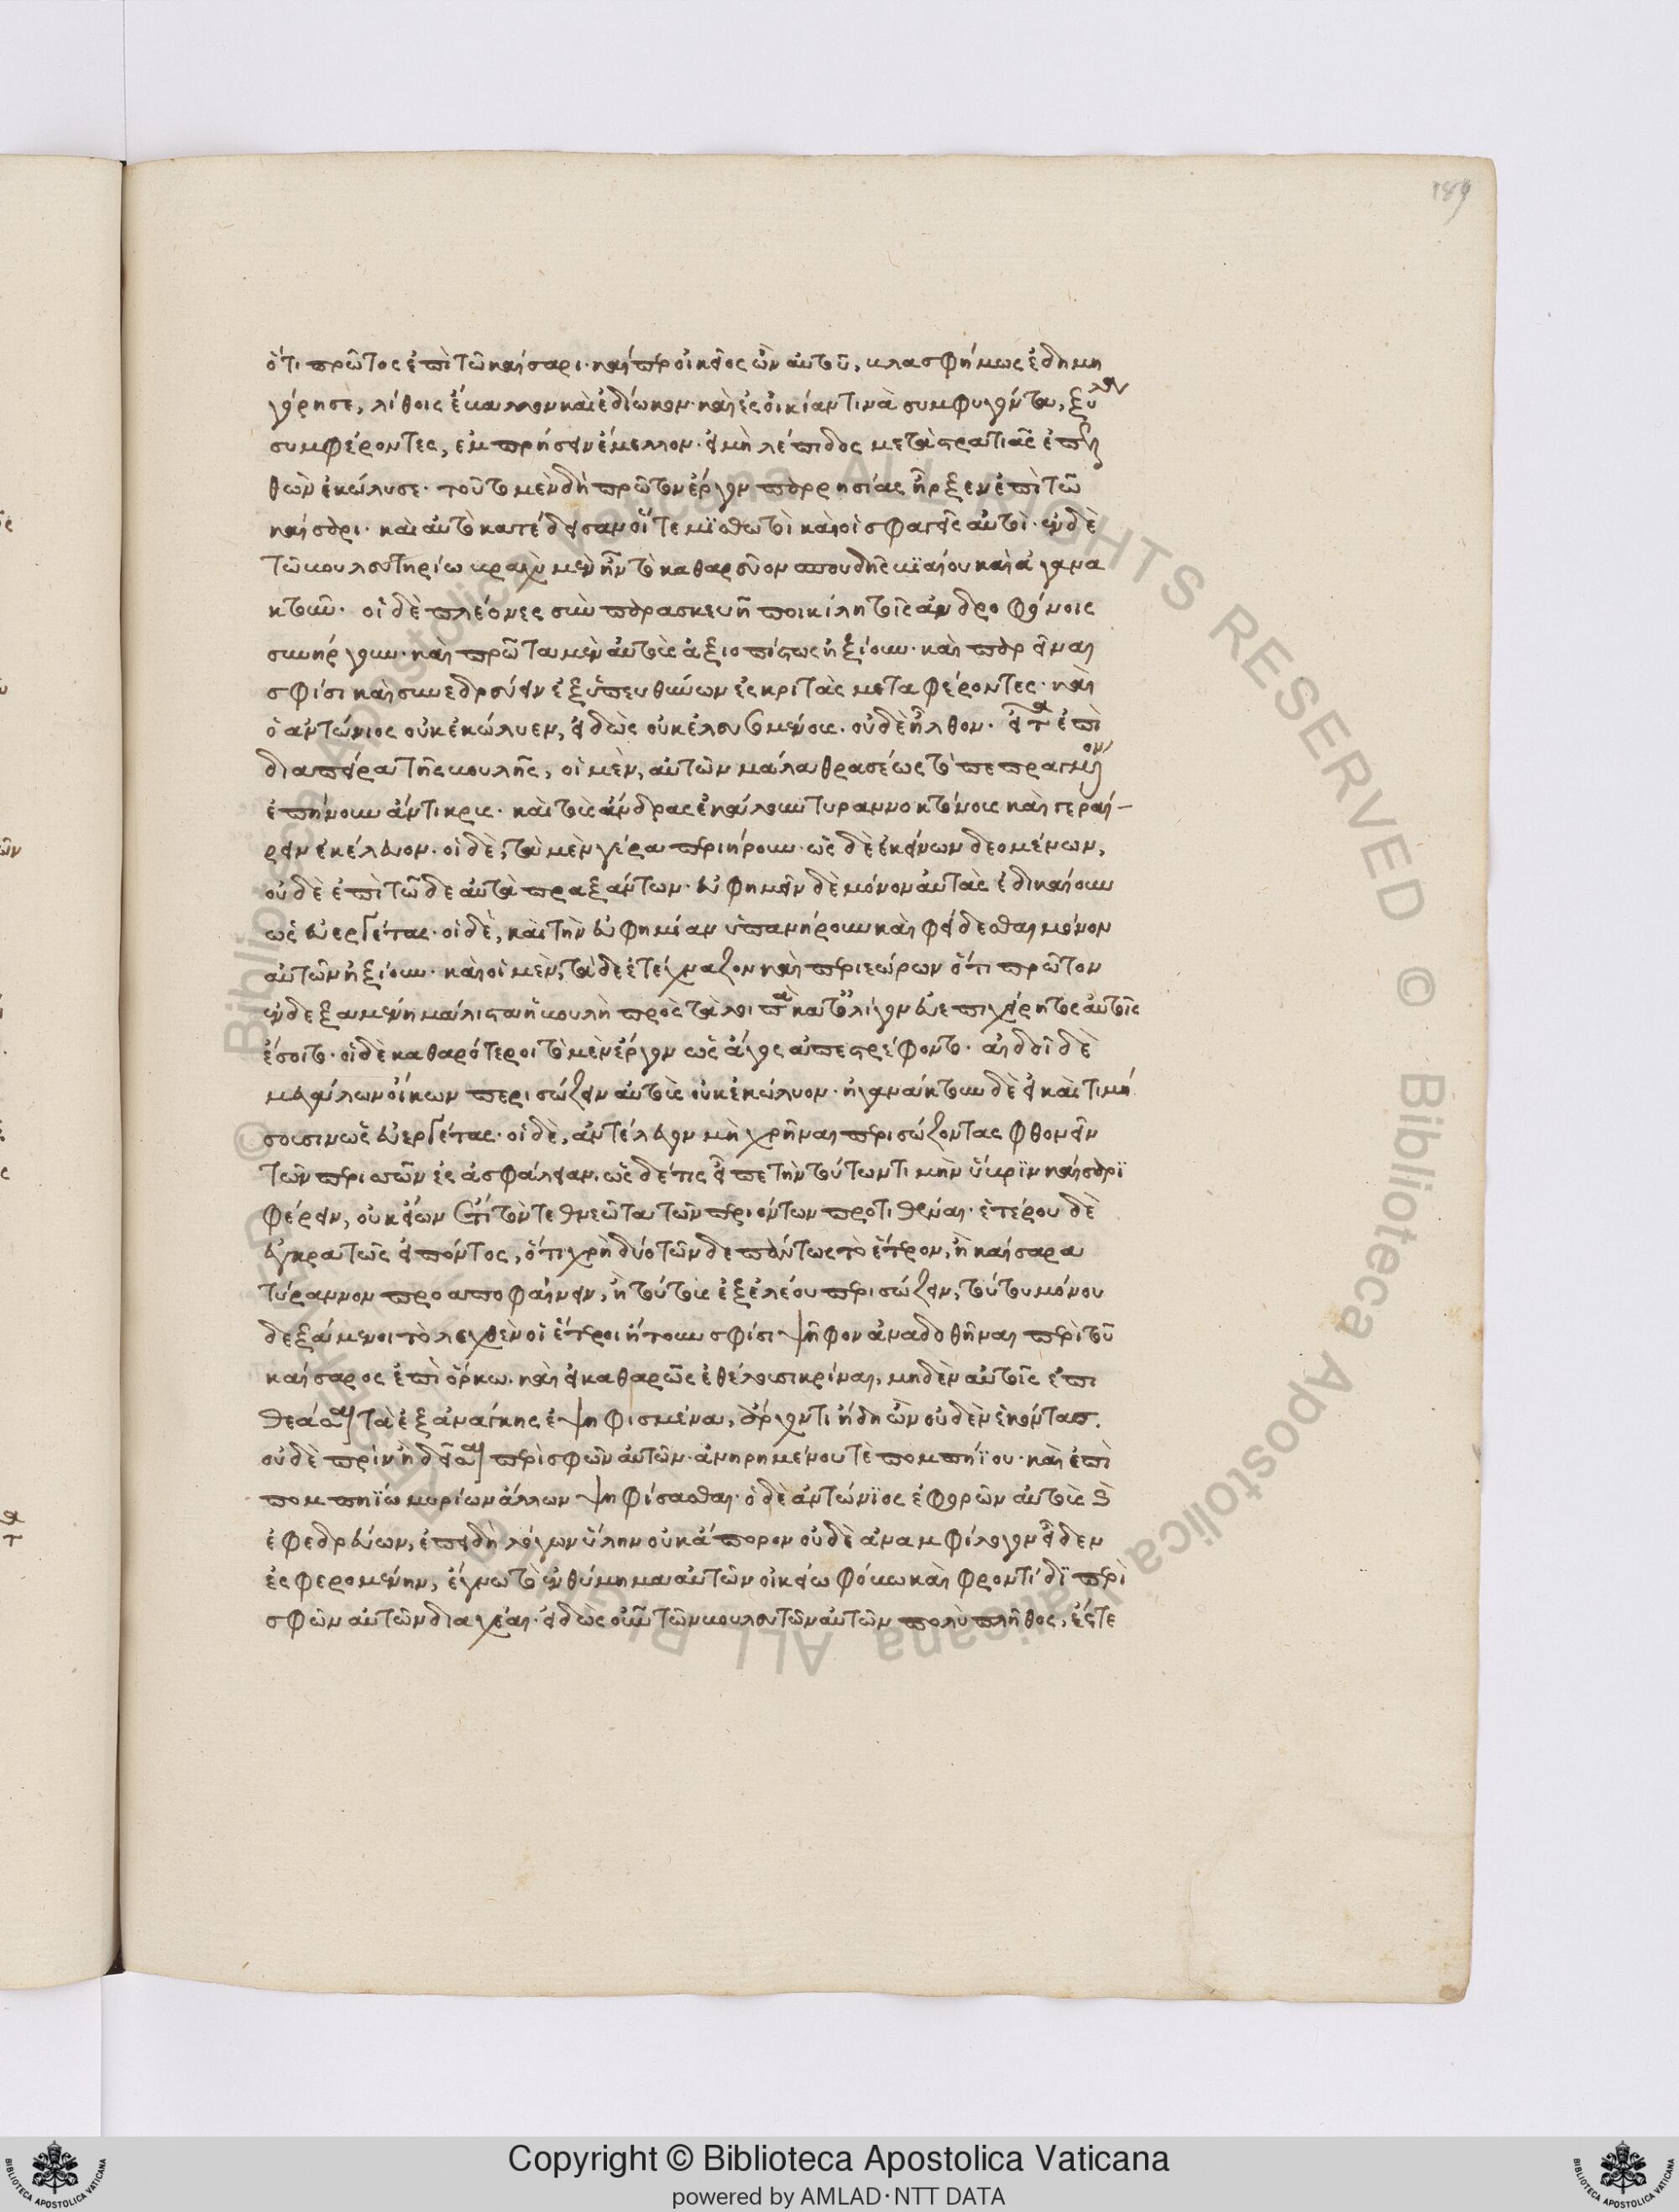 ὅτι πρῶτος ἐπὶ τῶ καίσαρι· καίπερ οἰκεῖος ὢν αὐτοῦ, βλασφήμως ἐδημη
γόρησε, λίθοις ἔβαλλον καὶ ἐδίωκον· καὶ ἐς οἰκίαν τινὰ συμφυγόντα, ξύλα
συμφέροντες, ἐμπρήσειν ἔμελλον· εἰ μὴ λέπιδος μετὰ στρατιᾶς ἐπελ
θὼν ἐκώλυσε· τοῦτο μὲν δὴ πρῶτον ἔργον παρρησίας ἦρξεν ἐπὶ τῶ
καίσαρι· καὶ αὐτὸ κατέδεισαν οἵ τε μϊσθωτοὶ καὶ οἱ σφαγεῖς αὐτοὶ· ἐν δὲ
τῶ βουλευτηρίω βραχὺ μὲν ἦν τὸ καθαρεῦον σπουδῆς βϊαίου καὶ ἀγανα
κτοῦν· οἱ δὲ πλέονες σὺν παρασκευῆ ποικίλη τοῖς ἀνδροφόνοις
συνήργουν· καὶ πρῶτα μὲν αὐτοὺς ἀξιοπίστως ἠξίουν· καὶ παρεῖναι
σφίσι καὶ συνεδρεύειν ἐξ ὑπευθύνων ἐς κριτὰς μεταφέροντες· καὶ
ὁ ἀντώνιος οὐκ ἐκώλυεν, εἰδὼς οὐκ ἐλευσομένους. οὐδὲ ἦλθον. εἶτα ἐπὶ
διαπείρα τῆς βουλῆς, οἱ μὲν, αὐτῶν μάλα θρασέως τὸ πεπραγμένον
ἐπήνουν ἄντικρυς· καὶ τοὺς ἄνδρας ἐκάλουν τυραννοκτόνους καὶ γεραί-
ρειν ἐκέλευον· οἱ δὲ, τὰ μὲν γέρα περιήρουν· ὡς δὲ ἐκείνων δεομένων,
οὐδὲ ἐπὶ τῶδε αὐτὰ πραξάντων· εὐφημεῖν δὲ μόνον αὐτοὺς ἐδικαίουν
ὡς εὐεργέτας· οἱ δὲ, καὶ τὴν εὐφημίαν ὑπανήρουν καὶ φείδεσθαι μόνον
αὐτῶν ἠξίουν· καὶ οἱ μὲν, τάδε ἐτέχναζον καὶ περιεώρων ὅτι πρῶτον
ἐνδεξαμένη μάλιστα ἡ βουλὴ πρὸς τὰ λοιπὰ κατ' ὀλίγον εὐεπιχείρητος αὐτοῖς
ἔσοιτο· οἱ δὲ καθαρότεροι τὸ μὲν ἔργον ὡς ἄγος ἀπεστρέφοντο· αἰδοῖ δὲ
μεγάλων οἴκων περισώζειν αὐτοὺς οὐκ ἐκώλυον· ἠγανάκτουν δὲ εἰ καὶ τιμή
σουσιν ὡς εὐεργέτας· οἱ δὲ, ἀντέλεγον μὴ χρῆναι περισώζοντας φθονεῖν
τῶν περισσῶν ἐς ἀσφάλειαν. ὡς δέ τις εἶπε τὴν τούτων τιμὴν ὕβριν καίσαρϊ
φέρειν, οὐκ εἴων ἔτι τὸν τεθνεῶτα τῶν περιόντων προτιθέναι· ἑτέρου δὲ
ἐγκρατῶς εἰπόντος, ὅτι χρὴ δυοῖν τῶνδε πάντως τὸ ἕτερον, ἢ καίσαρα
τύραννον προαποφαίνειν, ἢ τούτους ἐξ ἐλέου περισώζειν, τούτου μόνου
δεξάμενοι τὸ λεχθὲν οἱ ἕτεροι ἤτουν σφίσι ψῆφον ἀναδοθῆναι περὶ τοῦ
καίσαρος ἐπὶ ὅρκω. καὶ εἰ καθαρῶς ἐθέλουσι κρῖναι, μηδὲν αὐτοῖς ἐπι
θεάσαι τὰ ἐξ ἀνάγκης ἐψηφισμένα, ἄρχοντι ἤδη ὢν οὐδὲν ἑκόντας.
οὐδὲ πρὶν ἢ δεῖσαι περὶ σφῶν αὐτῶν· ἀνηρημένου τὲ πομπηΐου· καὶ ἐπὶ
πομπηΐω μυρίων ἄλλων ψηφίσασθαι· ὁ δὲ ἀντώνϊος ἐφορῶν αὐτοὺς καὶ
ἐφεδρεύων, ἐπειδὴ λόγων ὕλην οὐκ ἄπορον οὐδὲ ἀναμφίλογον εἶδεν
ἐσφερομένην, ἔγνω τὸ ἐνθύμημα αὐτῶν οἰκείω φόβω καὶ φροντίδϊ περὶ
σφῶν αὐτῶν διαχέαι· εἰδὼς οὖν τῶν βουλευτῶν αὐτῶν πολὺ πλῆθος, ἔς τε